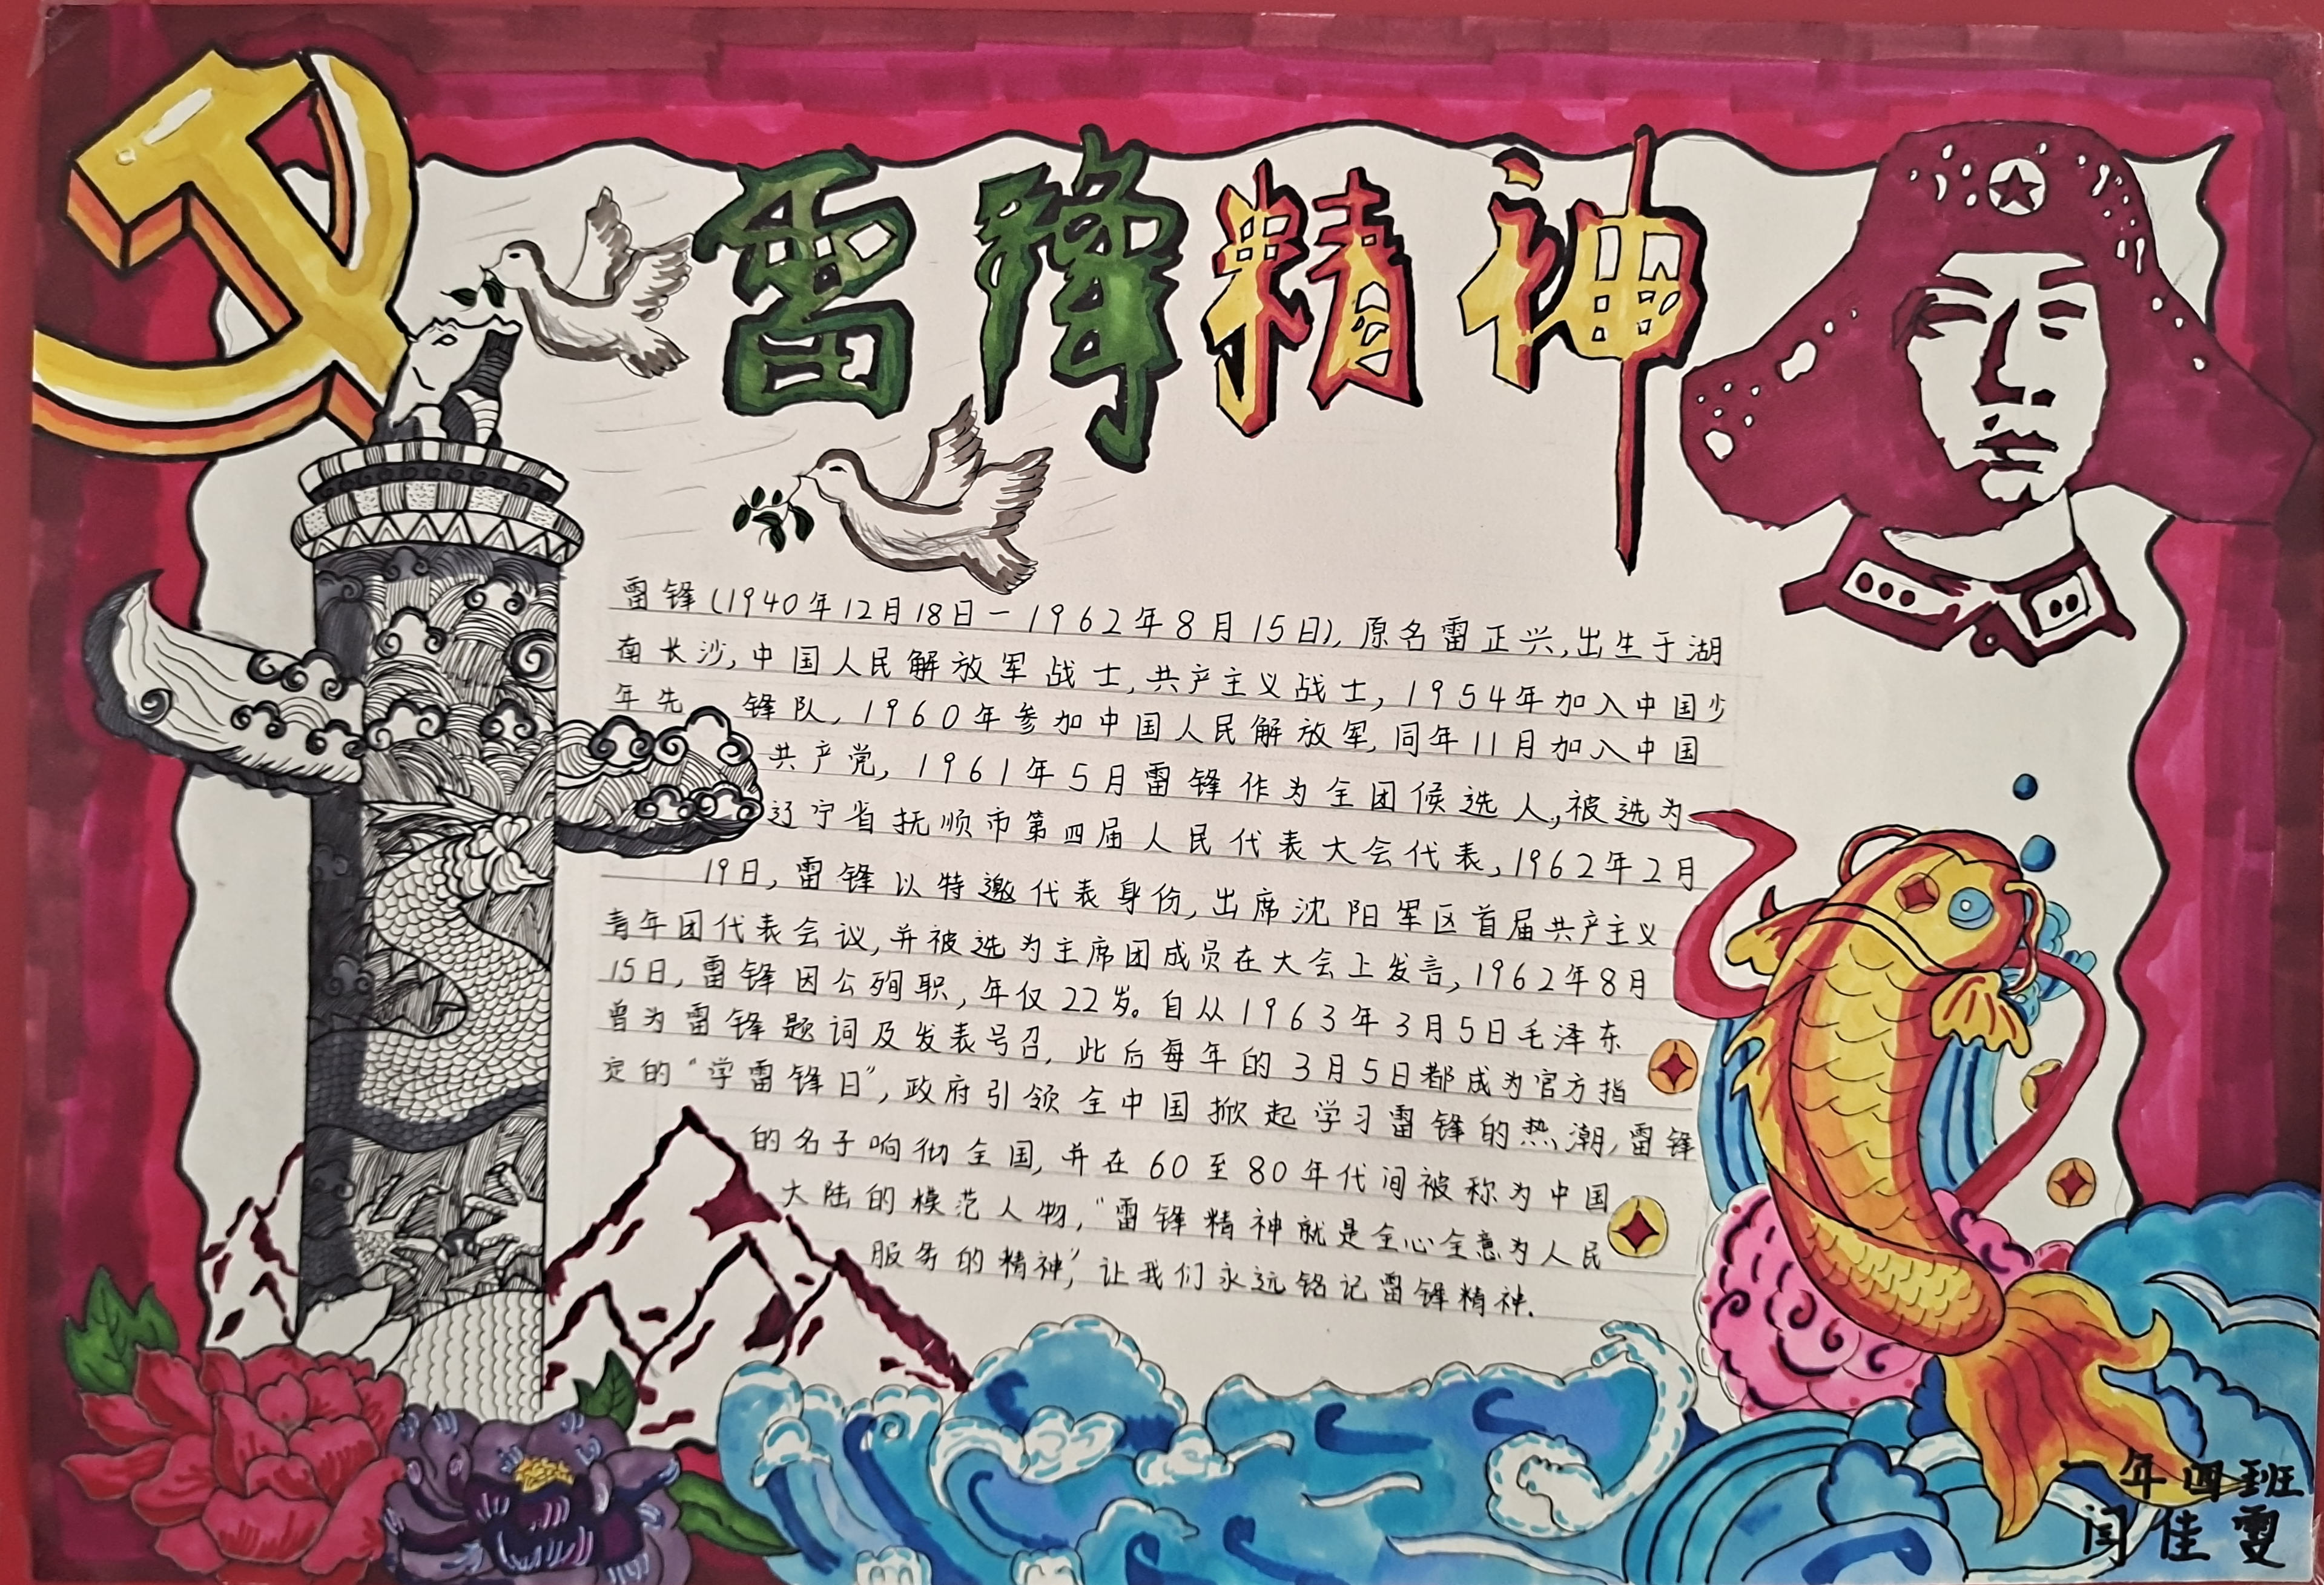 雷锋精神
雷锋(1940年12月18日一1962年8月15日),原名雷正兴,出生于湖
南长沙,中国人民解放军战士,共产主义战士,1954年加入中国少
年先锋队,1960年参加中国人民解放军,同年11月加入中国
共产党,1961年5月雷锋作为全团候选人,被选为
辽宁省抚顺市第四届人民代表大会代表,1962年2月
19日,雷锋以特邀代表身份,出席沈阳军区首届共产主义
青年团代表会议,并被选为主席团成员在大会上发言,1962年8月
15日,雷锋因公殉职,年仅22岁。自从1963年3月5日毛泽东
曾为雷锋题词及发表号召,此后每年的3月5日都成为官方指
定的“学雷锋日”,政府引领全中国掀起学习雷锋的热潮,雷锋
的名子响彻全国,并在60至80年代间被称为中国
大陆的模范人物,“雷锋精神就是全心全意为人民
服务的精神”,让我们永远铭记雷锋精神.
一年四班
闫佳雯